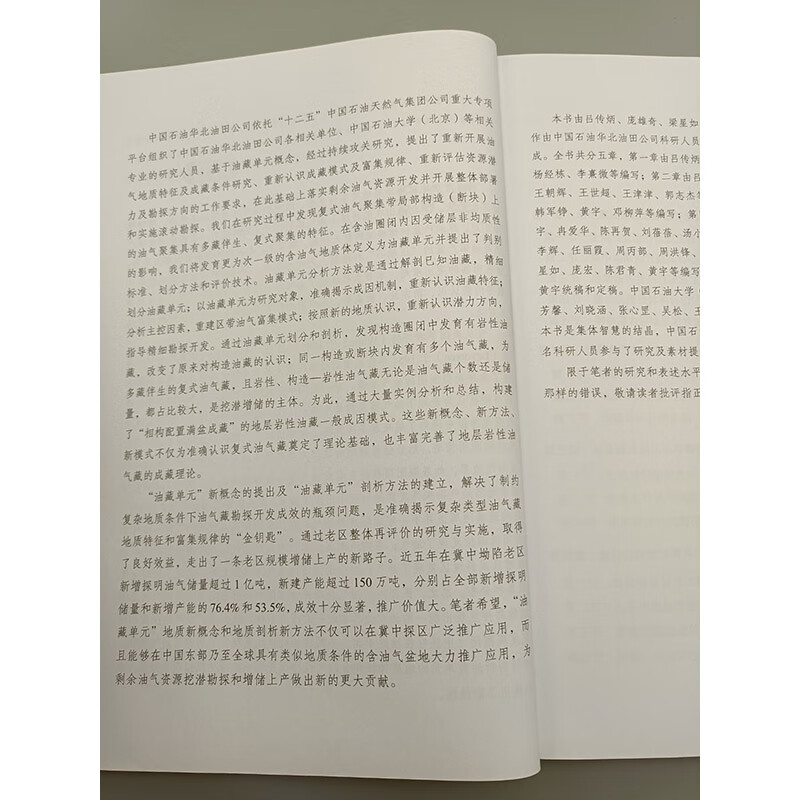 中国石油华北油田公司依托“十二五”中国石油天然气集团公司重大专项
平台组织了中国石油华北油田公司各相关单位、中国石油大学（北京）等相关
专业的研究人员，基于油藏单元概念，经过持续攻关研究，提出了重新开展油
气地质特征及成藏条件研究、重新认识成藏模式及富集规律、重新评估资源潜
力及勘探方向的工作要求，在此基础上落实剩余油气资源开发并开展整体部署
和实施滚动勘探。我们在研究过程中发现复式油气聚集带局部构造（断块）上
的油气聚集具有多藏伴生、复式聚集的特征。在含油圈闭内因受储层非均质性
的影响，我们将发育更为次一级的含油气地质体定义为油藏单元并提出了判别
标准、划分方法和评价技术。油藏单元分析方法就是通过解剖已知油藏，精细
划分油藏单元；以油藏单元为研究对象，准确揭示成因机制，重新认识油藏特征；
分析主控因素，重建区带油气富集模式；按照新的地质认识，重新认识潜力方向，
指导精细勘探开发。通过油藏单元划分和剖析，发现构造圈闭中发育有岩性油
藏，改变了原来对构造油藏的认识；同一构造或断块内发育有多个油气藏，为
多藏伴生的复式油气藏，且岩性、构造—岩性油气藏无论是油气藏个数还是储
量，都占比较大，是挖潜增储的主体。为此，通过大量实例分析和总结，构建
了“相构配置满盆成藏”的地层岩性油藏一般成因模式。这些新概念、新方法、
新模式不仅为准确认识复式油气藏奠定了理论基础，也丰富完善了地层岩性油
气藏的成藏理论。
“油藏单元”新概念的提出及“油藏单元”剖析方法的建立，解决了制约
复杂地质条件下油气藏勘探开发成效的瓶颈问题，是准确揭示复杂类型油气藏
地质特征和富集规律的“金钥匙”。通过老区整体再评价的研究与实施，取得
了良好效益，走出了一条老区规模增储上产的新路子。近五年在冀中坳陷老区
新增探明油气储量超过1亿吨，新建产能超过150万吨，分别占全部新增探明
储量和新增产能的76.4%和53.5%，成效十分显著，推广价值大。笔者希望，“油
藏单元”地质新概念和地质剖析新方法不仅可以在冀中探区广泛推广应用，而
且能够在中国东部乃至全球具有类似地质条件的含油气盆地大力推广应用，为
剩余油气资源挖潜勘探和增储上产做出新的更大贡献。
本书由吕传炳、庞雄奇、梁星如
作由中国石油华北油田公司科研人员
成。全书共分五章，第一章由吕传炳
杨经栋、李熹微等编写；第二章由吕
王朝辉、王世超、王津津、郭志杰等
韩军铮、黄宇、邓柳萍等编写；第
宇、冉爱华、陈再贺、刘蓓蓓、汤小
李辉、任丽霞、周丙部、周洪锋、
星如、庞宏、陈君青、黄宇等编写
黄宇统稿和定稿。中国石油大学（
芳馨、刘晓涵、张心罡、吴松、王
本书是集体智慧的结晶，中国石
名科研人员参与了研究及素材提
限于笔者的研究和表述水平
那样的错误，敬请读者批评指正